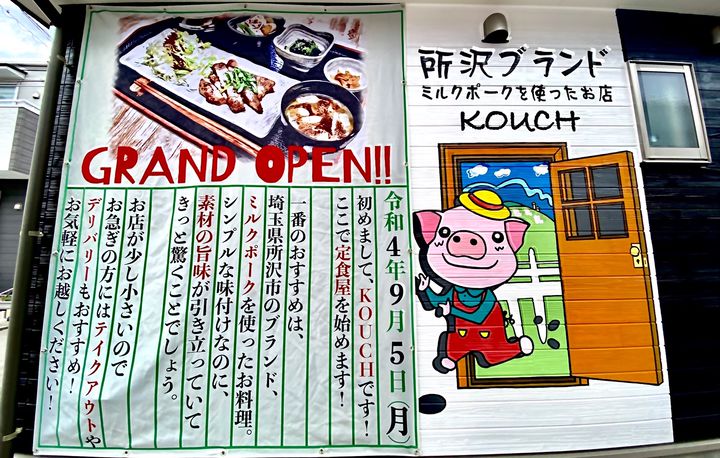 GRAND OPEN!!
令和4年9月5日(月)
初めまして、KOUCHです!
ここで定食屋を始めます!
一番のおすすめは、
埼玉県所沢市のブランド、
ミルクポークを使ったお料理。
シンプルな味付けなのに、
素材の旨味が引き立っていて
きっと驚くことでしょう。
お店が少し小さいので
お急ぎの方にはテイクアウトや
デリバリーもおすすめ!
お気軽にお越しください!
所沢ブランド
ミルクポークを使ったお店
KOUCH